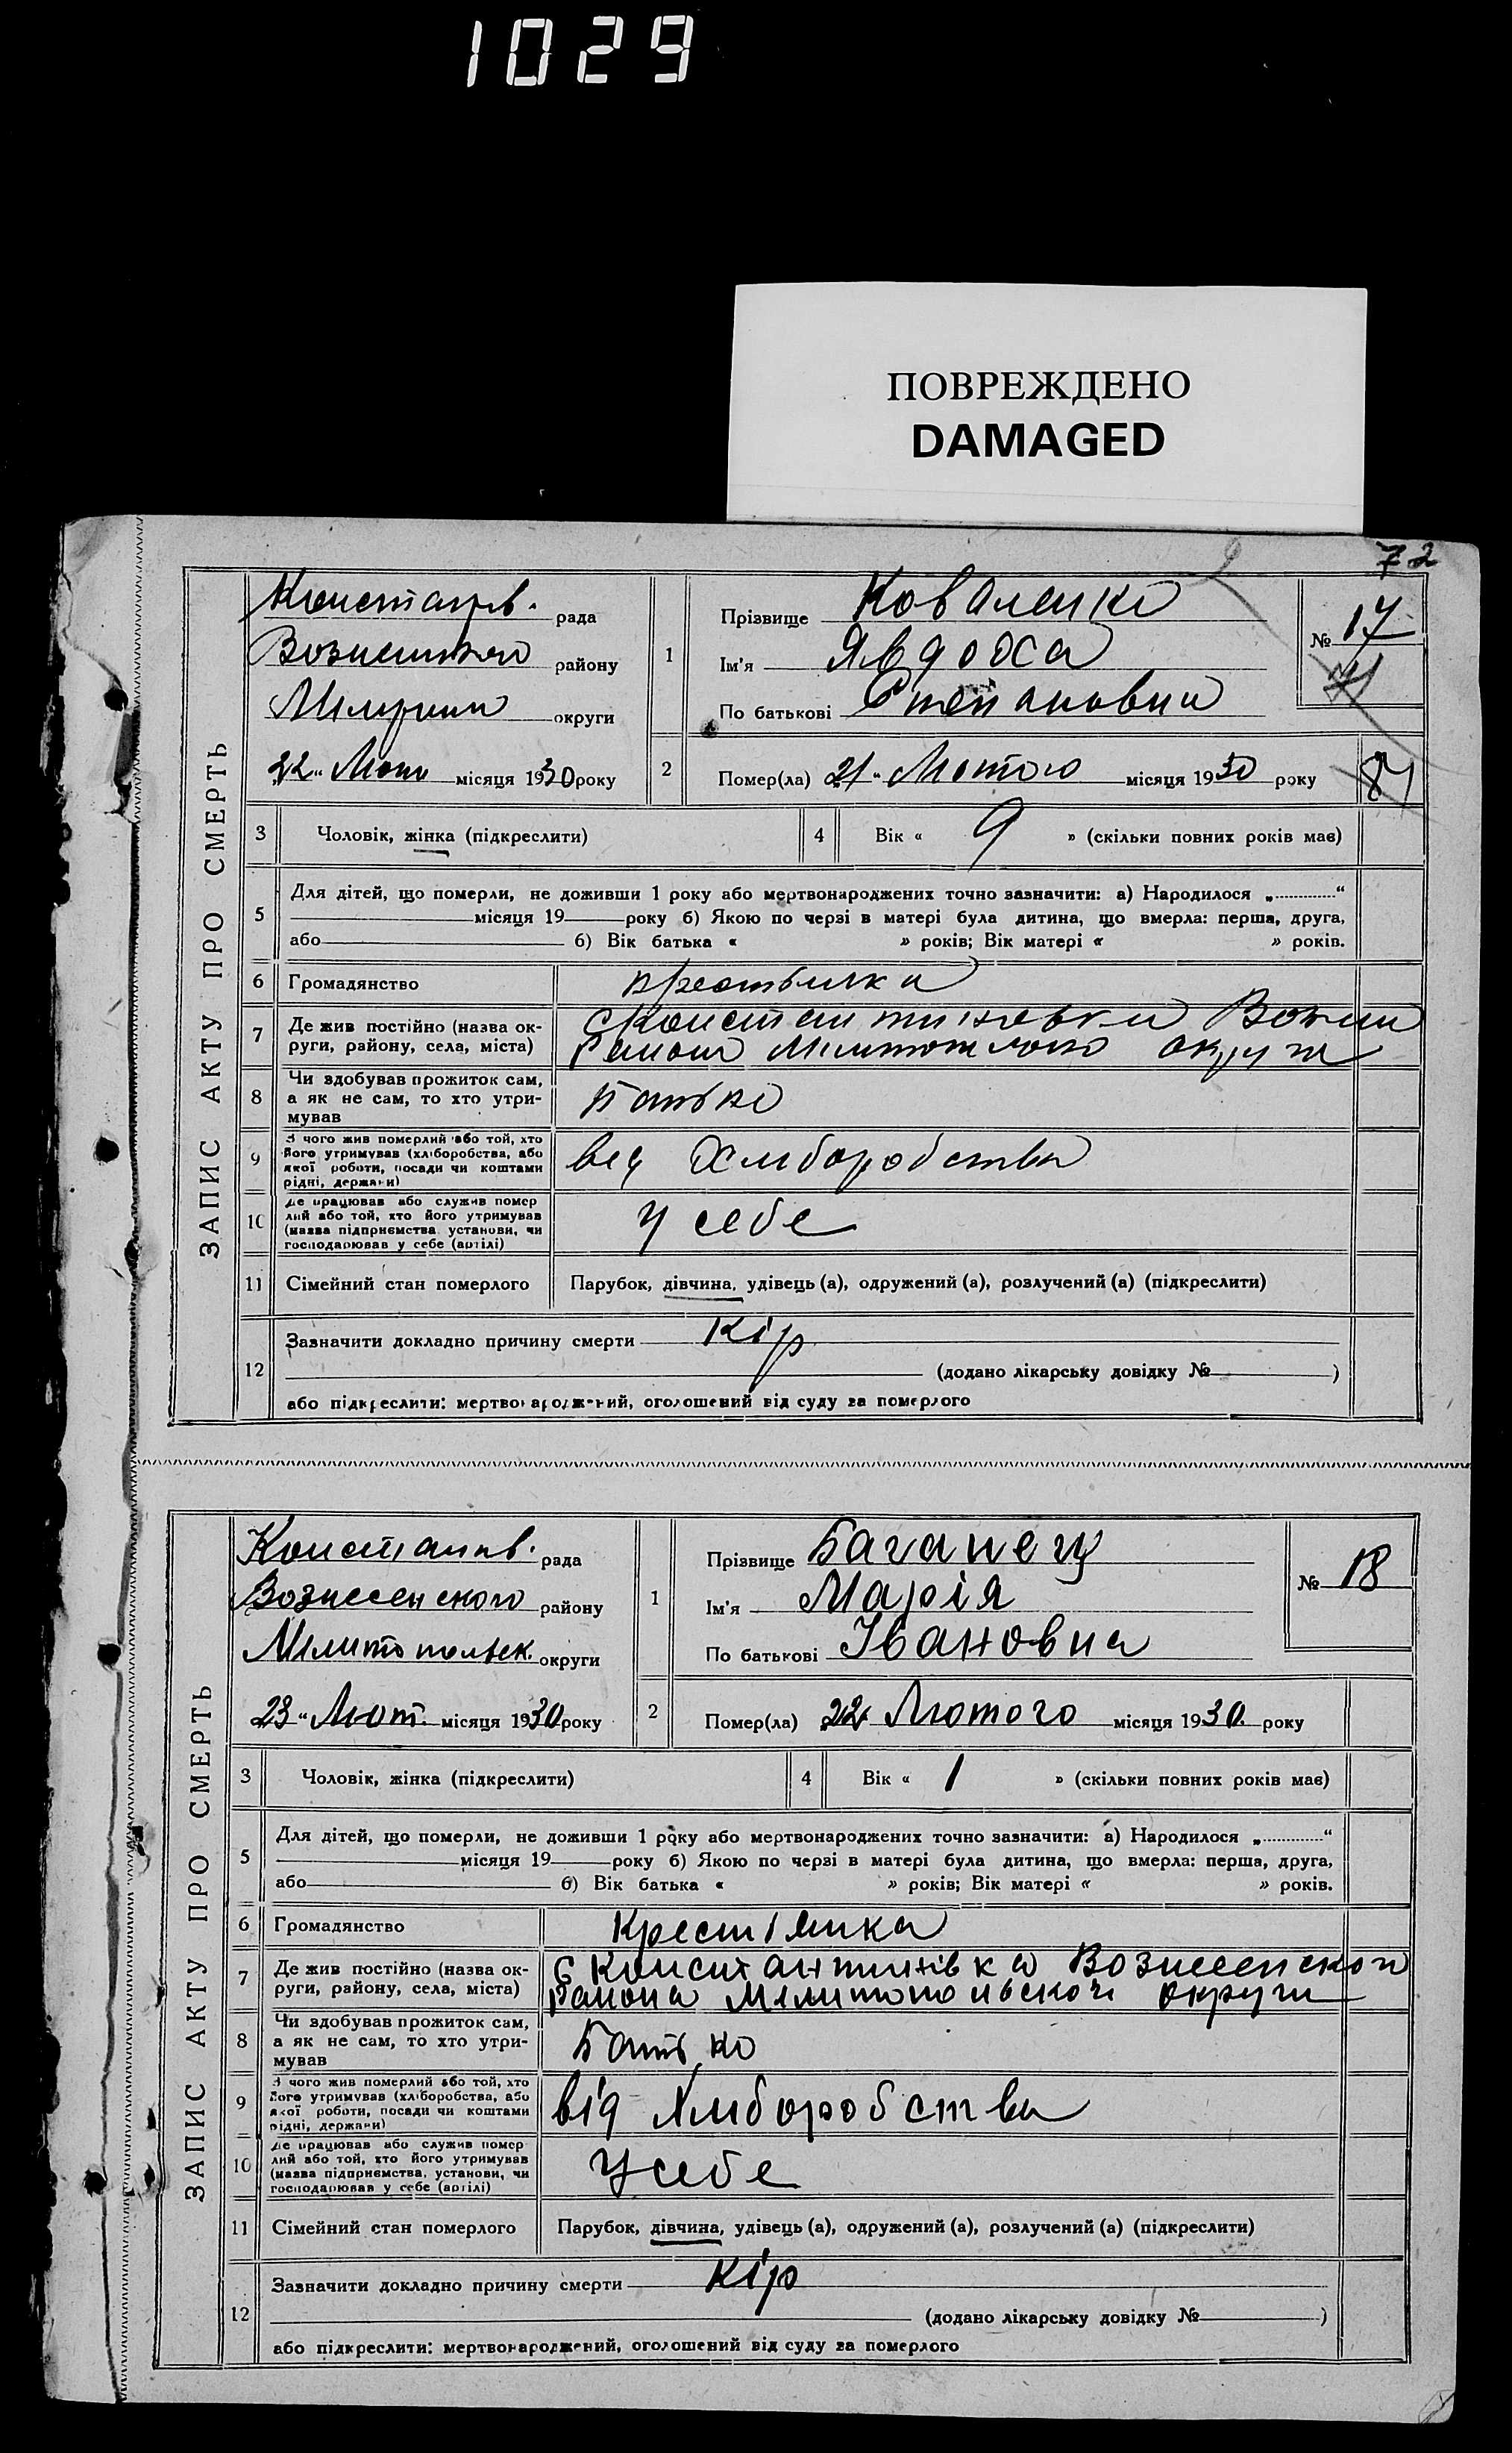 1029
ПОВРЕЖДЕНО
DAMAGED
72
ЗАПИС АКТУ ПРО СМЕРТЬ
рада
району
округи
22 " Лют місяця 1930 року
1
Прізвище Коваленко
Ім'я Явдоха
По батькові Степановна
№ 17
2
Помер(ла) 21 " Лютого місяця 1930 року
84
3 Чоловік, жінка (підкреслити)
4 Вік « 9 » (скільки повних років має)
5 Для дітей, що померли, не доживши 1 року або мертвонароджених точно зазначити: а) Народилося „ “
місяця 19 року б) Якою по черзі в матері була дитина, що вмерла: перша, друга,
або б) Вік батька « » років; Вік матері « » років.
6 Громадянство
7 Де жив постійно (назва ок-
руги, району, села, міста)
округи
8 Чи здобував прожиток сам,
а як не сам, то хто утри-
мував
Батько
9 З чого жив померлий або той, хто
його утримував (хліборобства, або
якої роботи, посади чи коштами
рідні, держави)
Хлиборобства
10 Де працював або служив помер
лий або той, хто його утримував
(назва підприємства установи, чи
господарював у себе (артілі)
У себе
11 Сімейний стан померлого Парубок, дівчина, удівець (а), одружений (а), розлучений (а) (підкреслити)
12 Зазначити докладно причину смерти Кір
(додано лікарську довідку № )
або підкреслити: мертвонароджений, оголошений від суду за померлого
ЗАПИС АКТУ ПРО СМЕРТЬ
Константнв. рада
Вознесенского району
Мелитопольск. округи
23 " Лют. місяця 1930 року
1
Прізвище Баганец
Ім'я Марія
По батькові Івановна
№ 18
2
Помер(ла) 22 Лютого місяця 1930. року
3 Чоловік, жінка (підкреслити)
4 Вік « 1 » (скільки повних років має)
5 Для дітей, що померли, не доживши 1 року або мертвонароджених точно зазначити: а) Народилося „ “
місяця 19 року б) Якою по черзі в матері була дитина, що вмерла: перша, друга,
або б) Вік батька « » років; Вік матері « » років.
6 Громадянство Крестянка
7 Де жив постійно (назва ок-
руги, району, села, міста)
С Константинівка Вознесенског
района Мелитопольскої округи
8 Чи здобував прожиток сам,
а як не сам, то хто утри-
мував
Батько
9 З чого жив померлий або той, хто
його утримував (хліборобства, або
якої роботи, посади чи коштами
рідні, держави)
від Хлиборобства
10 Де працював або служив помер
лий або той, хто його утримував
(назва підприємства, установи, чи
господарював у себе (артілі)
У себе
11 Сімейний стан померлого Парубок, дівчина, удівець (а), одружений (а), розлучений (а) (підкреслити)
12 Зазначити докладно причину смерти Кір
(додано лікарську довідку № )
або підкреслити: мертвонароджений, оголошений від суду за померлого